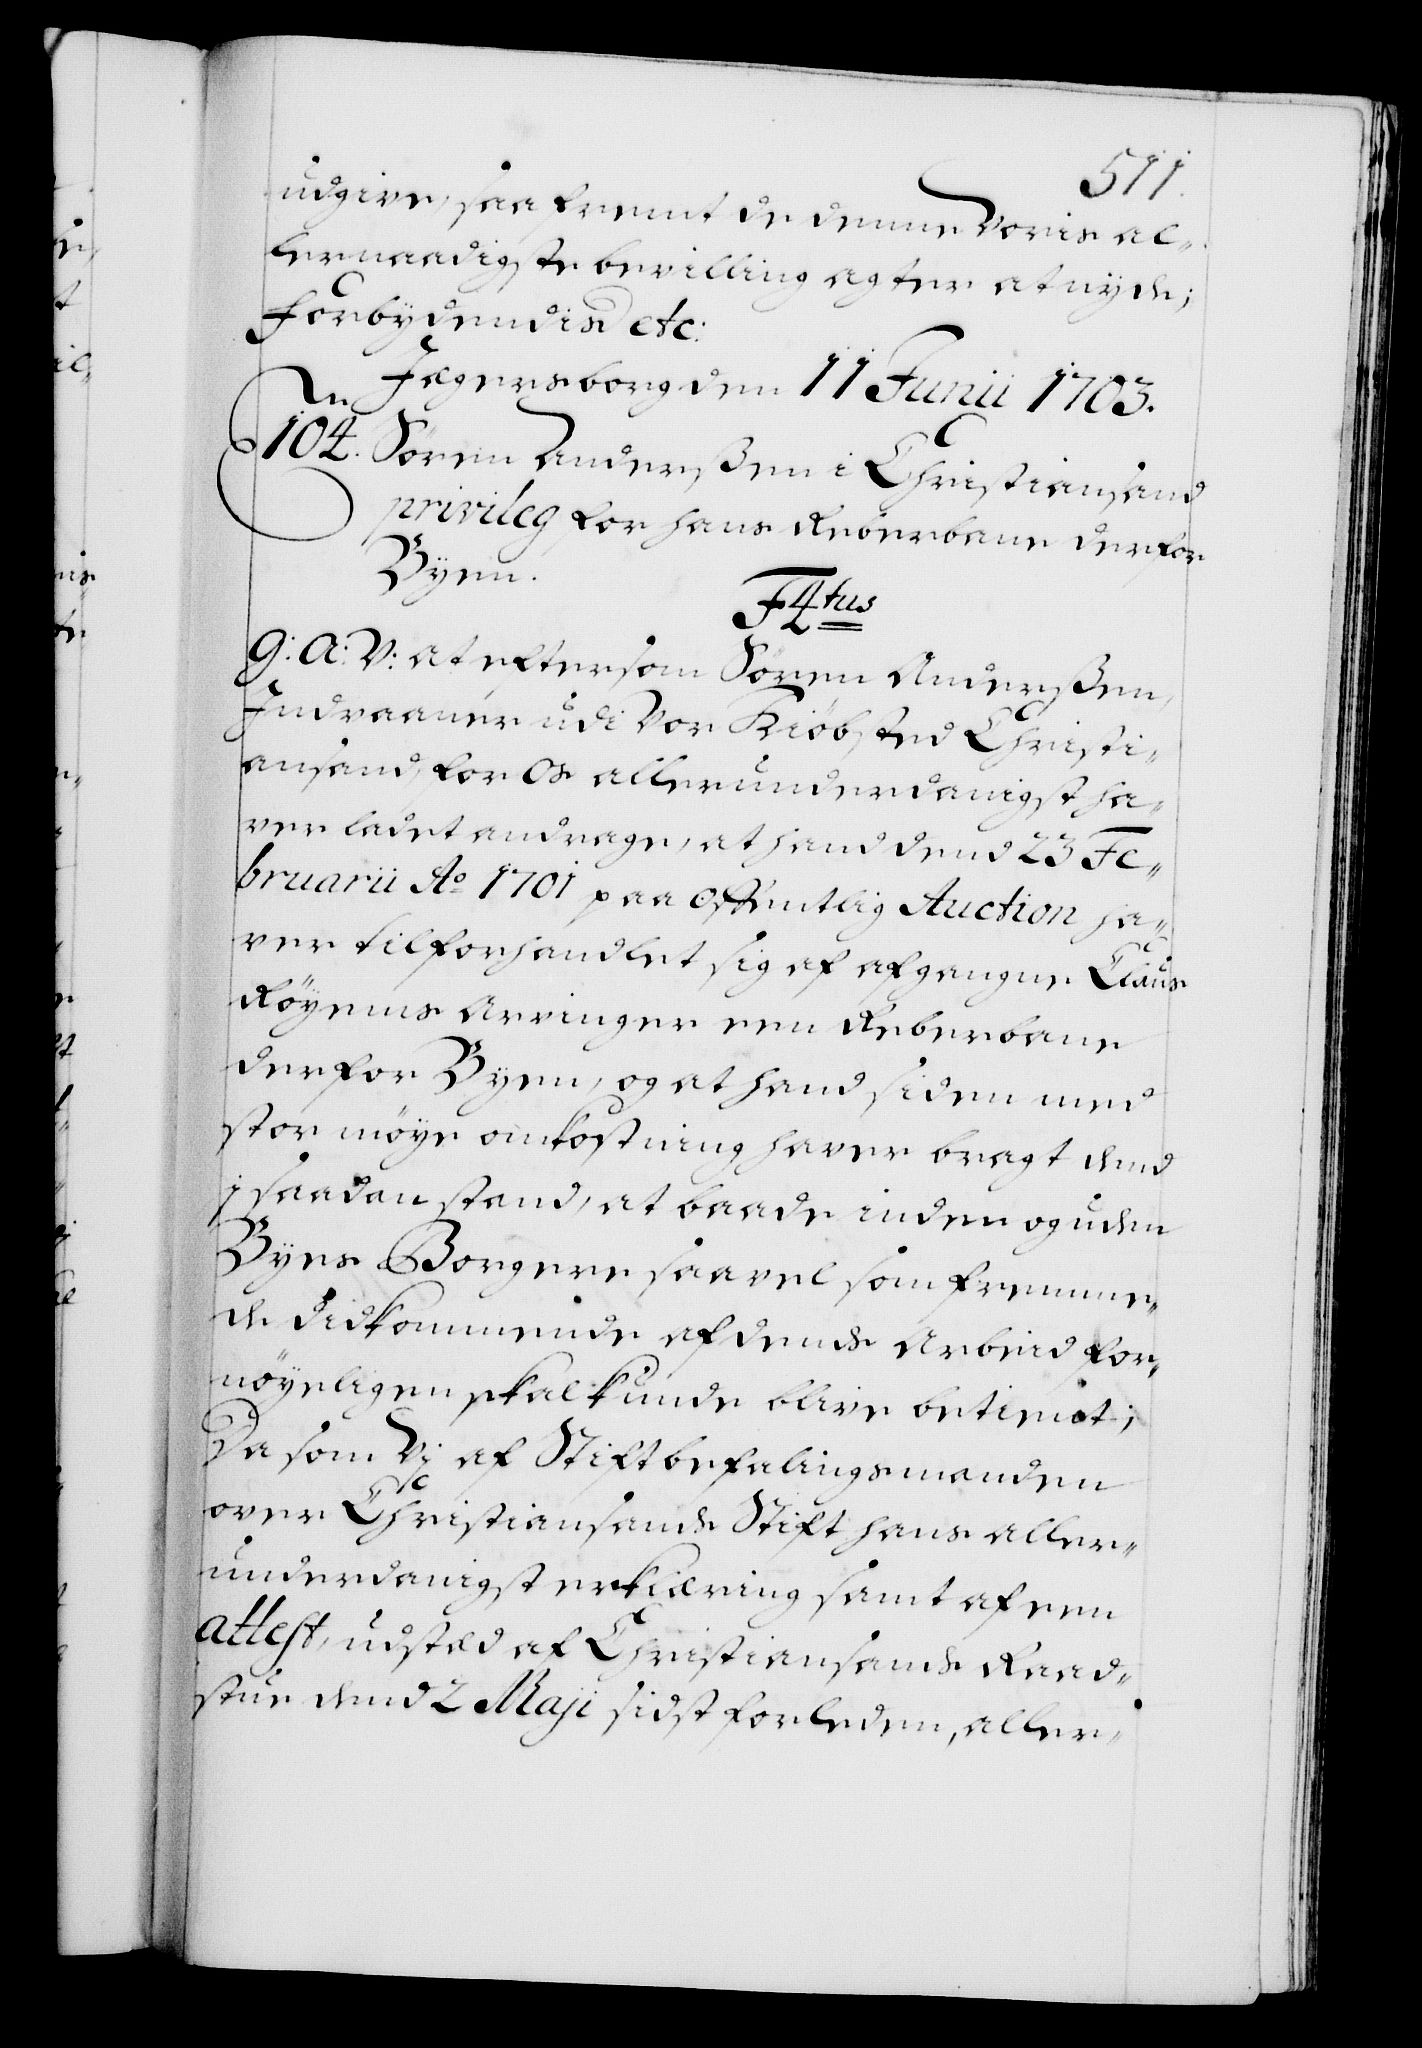 511.
udgive, saafremt de denne Voris al-
lernaadigste bevilling agter at nyde;
Forbydendis etc:
Jægersborg den 11 Junii 1703.
104. Sören Anderßen i Christiansand
privileg for hans Reberbane der for
Byen.
F4tus
G: A: V: at eftersom Sören Anderßen,
Indvaaner udi Vor Kiöbsted Christi-
ansand, for Os allerunderdanigst ha-
ver ladet andrage, at hand dend 23 Fe-
bruarii Ao 1701 paa Offentlig Auction ha-
ver tilforhandlet sig af afgangne Claus
Röyems Arvinger een Reberbane
der for Byen, og at hand siden med
stor möye omkostning haver bragt dend
i saadan stand, at baade inden og uden
Byes Borgere saavel som fremme-
de didkommende af dends Arbeid for-
nöyeligen skal kunde blive betient;
Da som Vj af Stiftbefalingsmanden
over Christiansands Stift hans aller-
underdanigst erklæring samt af een
attest, udsted af Christiansands Raad-
stue dend 2 Maji sidst forleden, aller-